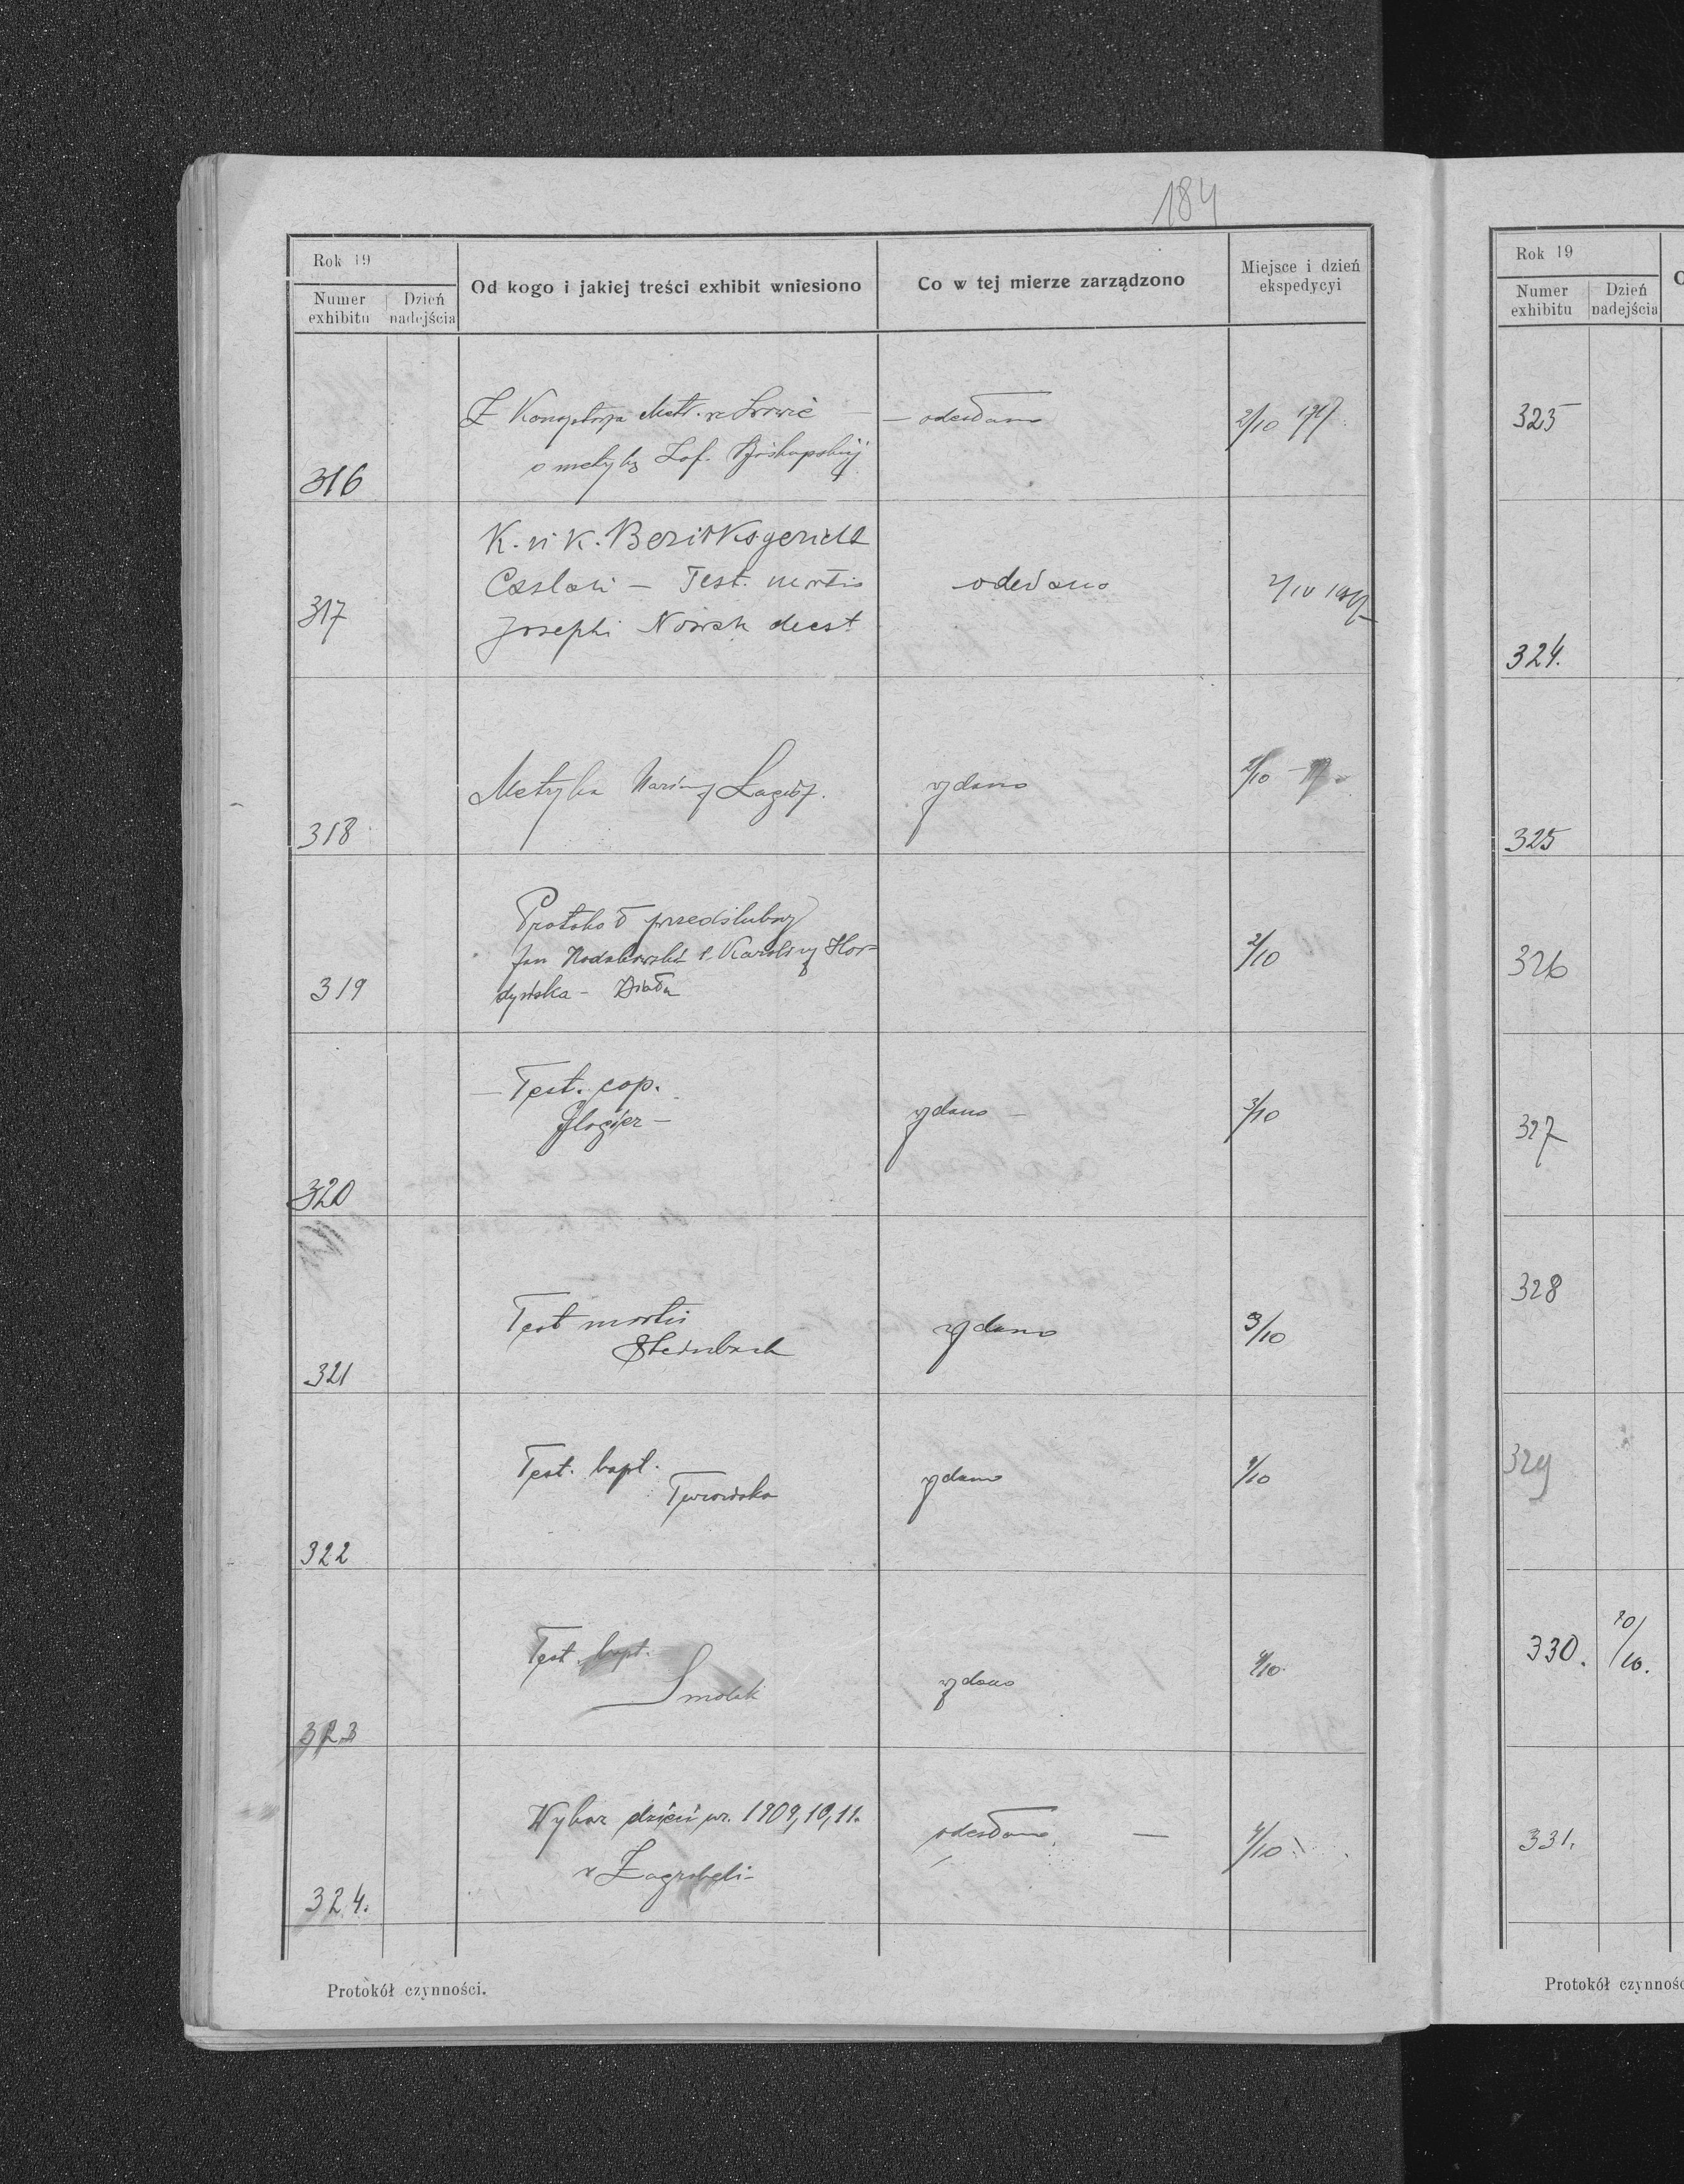 184
Rok 19
Numer exhibitu
Dzień nadejścia
Od kogo i jakiej treści exhibit wniesiono
Co w tej mierze zarządzono
Miejsce i dzień ekspedycyi
316
Z Metr. we Lwowie —
o metrykę Zof. Biskupskiej
— odesłano
2/10 1917
317
K. u K. Bezirksgericht
Časlau — Test. mortis
Josephi Nowak deest
odesłano
2/10 1917
318
Metryka Maryi
wydano
2/10
319
Protokoł przedślubny
Jan Karoliny Hor-
dyńska — Biała
2/10
320
— Test. cop.
Glogier —
wydano —
3/10
321
Test mortis
Steinbach
wydano
3/10
322
Test. bapt.
Turowska
wydano
4/10
323
Test. bapt.
Smolek
wydano
4/10
324.
Wykaz dzieci ur. 1909, 10, 11.
w Zagrobeli —
odesłano —
4/10
Protokół czynności.
Rok 19
Numer exhibitu
Dzień nadejścia
325
324.
325
326
327
328
329
330.
10/10.
331.
Protokół czynnośc